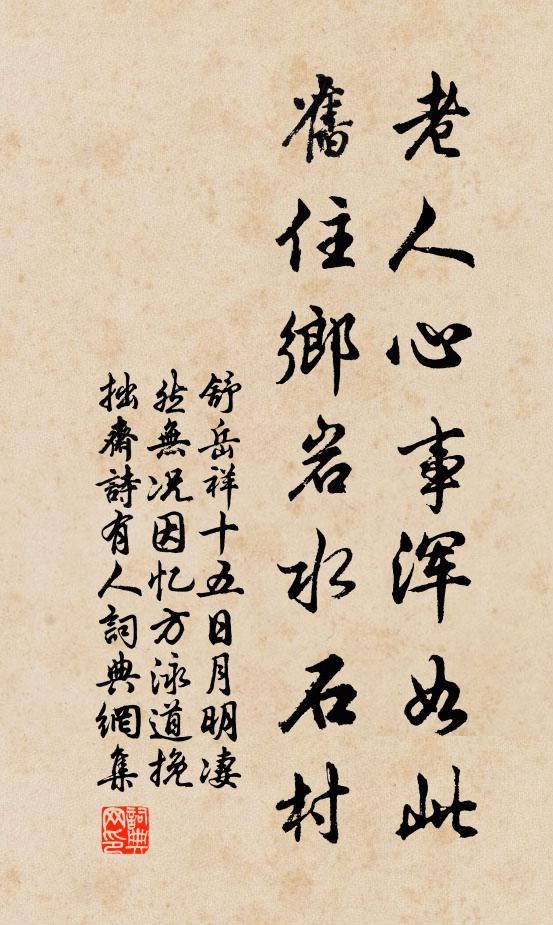 老人心事浑如此
舊住鄉岩水石村
舒岳祥十五日月明凄
然無况因忆方泳道挽
拙齋詩有人詞典網集
詞典
网印